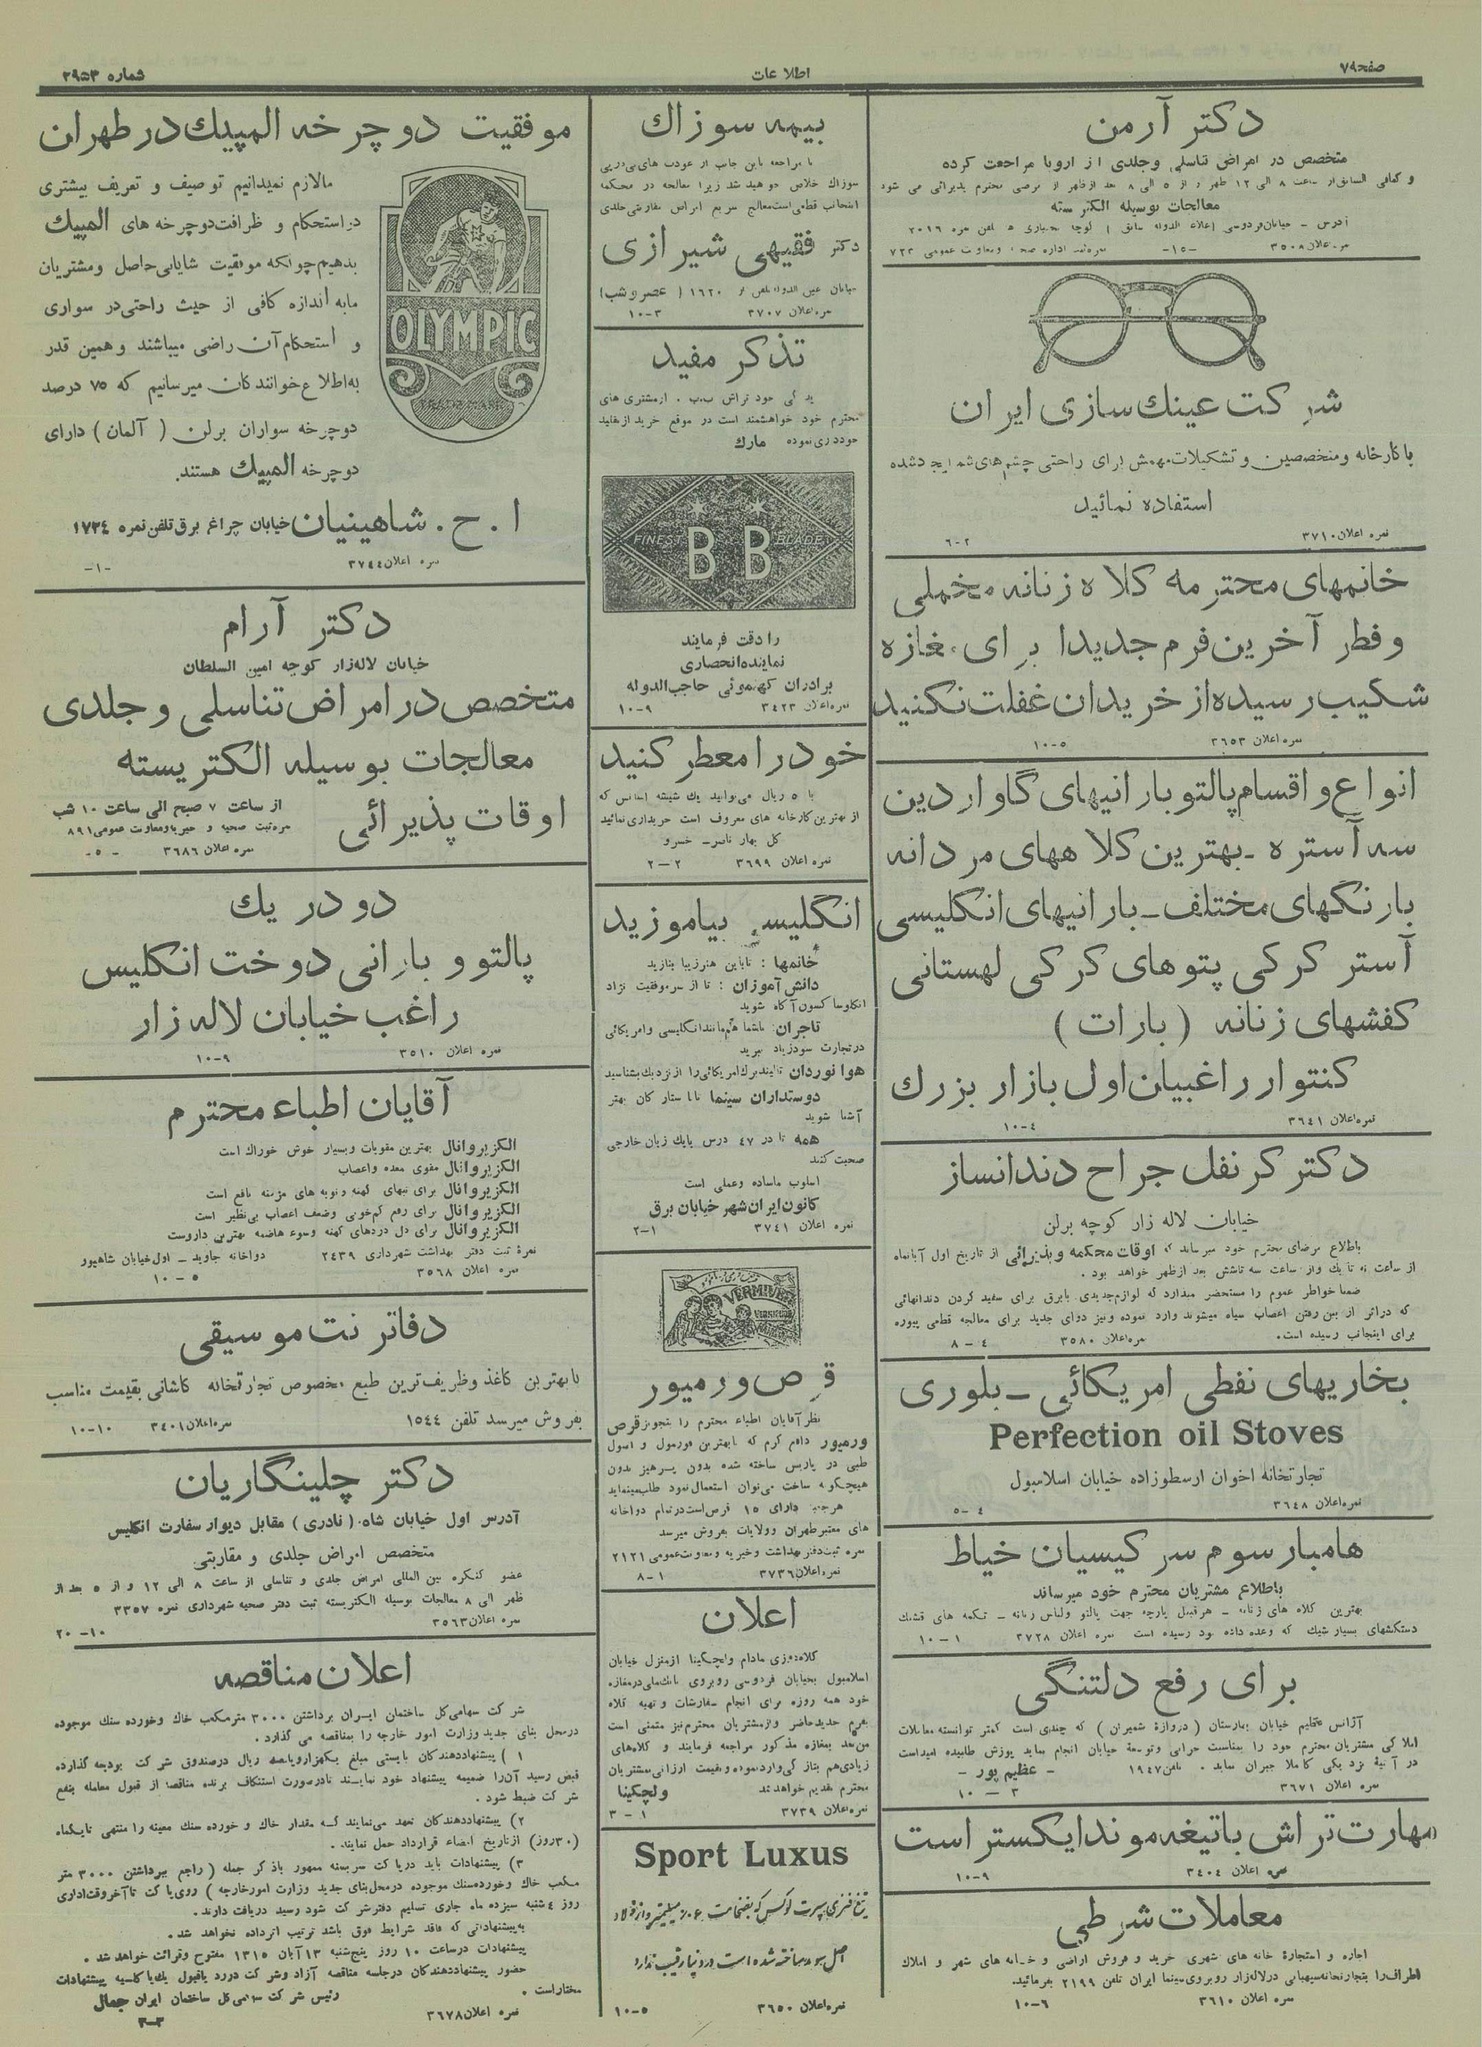 صفحه ۷۹
اطلاعات
شماره ۲۹۵۳
دکتر آرمن
متخصص در امراض تناسلی وجلدی از اروپا مراجعت کرده
معالجات بوسیله الکتریسته
شرکت عینک سازی ایران
با کارخانه ومتخصصین و تشکیلات مهمش برای راحتی چشم های شما ایجاد شده
استفاده نمائید
نمره اعلان ۳۷۱۰ ۲-۶
خانمهای محترمه کلاه زنانه مخملی
وفطر آخرین فرم جدیدا برای مغازه
شکیب رسیده از خریدان غفلت نکنید
نمره اعلان ۳۶۵۳ ۵-۱۰
انواع و اقسام پالتو بارانیهای گاواردین
سه آستره - بهترین کلاههای مردانه
بارنگهای مختلف - بارانیهای انگلیسی
آستر کرکی پتوهای کرکی لهستانی
کفشهای زنانه (بارات)
کنتوار راغبیان اول بازار بزرک
نمره اعلان ۳۶۴۱ ۴-۱۰
دکتر کرنفل جراح دندانساز
خیابان لاله زار کوچه برلن
باطلاع مرضای محترم خود میرساند که اوقات محکمه وپذیرائی از تاریخ اول آبانماه
از ساعت نه تا یک واز ساعت سه تاشش بعد از ظهر خواهد بود .
ضمنا خواطر عموم را مستحضر میدارد که لوازم جدیدی بابرق برای سفید کردن دندانهائی
که دراثر از بین رفتن اعصاب سیاه میشوند وارد نموده ونیز دوای جدید برای معالجه قطعی پیوره
برای اینجانب رسیده است.
نمره اعلان ۳۵۸۰ ۴ - ۸
بخاریهای نفطی امریکائی - بلوری
Perfection oil Stoves
تجارتخانه اخوان ارسطوزاده خیابان اسلامبول
نمره اعلان ۳۶۴۸ ۴-۵
هامبارسوم سرکیسیان خیاط
باطلاع مشتریان محترم خود میرساند
بهترین کلاه های زنانه - هرقبیل پارچه جهت پالتو ولباس زنانه - تکمه های قشنگ
دستکشهای بسیار شیک که وعده داده بود رسیده است نمره اعلان ۳۷۲۸ ۱-۱۰
برای رفع دلتنگی
آژانس عظیم خیابان بهارستان (دروازه شمیران) که چندی است کمتر توانسته معاملات
املاکی مشتریان محترم خود را بمناسبت خرابی وتوسعه خیابان انجام نماید پوزش طلبیده امیداست
در آتیه نزدیکی کاملا جبران نماید . تلفن ۱۹۴۷ - عظیم پور -
نمره اعلان ۳۶۷۱ ۳ - ۱۰
مهارت تراش باتیغه موند ایکستر است
نمره اعلان ۳۴۰۴ ۹-۱۰
معاملات شرطی
اجاره و استجاره خانه های شهری خرید و فروش اراضی و خانه های شهر و املاک
اطراف را بتجارتخانه سیهبانی در لاله زار روبروی سینما ایران تلفن ۲۱۹۹ بفرمائید.
نمره اعلان ۳۶۱۰ ۶-۱۰
بیمه سوزاک
با مراجعه باین جانب از عودت های پی درپی
سوزاک خلاص خواهید شد زیرا معالجه در محکمه
اینجانب قطعی است معالج سریع امراض مقاربتی جلدی
دکتر فقیهی شیرازی
خیابان عین الدوله تلفن نمره ۱۶۲۰ (عصر وشب)
نمره اعلان ۳۷۰۷ ۳-۱۰
تذکر مفید
محترم خود خواهشمند است در موقع خرید از تقلید
خودداری نموده مارک
FINEST BLADE
B B
را دقت فرمایند
نماینده انحصاری
برادران کهنموئی حاجب الدوله
نمره اعلان ۳۴۲۳ ۹-۱۰
خود را معطر کنید
با ۵ ریال میتوانید یک شیشه اسانس که
از بهترین کارخانه های معروف است خریداری نمائید
گل بهار ناصر- خسرو
نمره اعلان ۳۶۹۹ ۲-۲
انگلیسی بیاموزید
خانمها : تا باین هنر زیبا بنازید
دانش آموزان : تا از سر موفقیت نژاد
انگلوساکسون آگاه شوید
تاجران: تا شما هم مانند انگلیسی وامریکائی
در تجارت سود زیاد ببرید
هوا نوردان تا لیندبرک امریکائی را از نزدیک بشناسید
دوستداران سینما تا با ستارگان بهتر
آشنا شوید
همه تا در ۴۷ درس بایک زبان خارجی
صحبت کنند
اسلوب ما ساده وعملی است
کانون ایران شهر خیابان برق
نمره اعلان ۳۷۴۱ ۱-۲
VERMIVER
قرص ورمیور
نظر آقایان اطباء محترم را بتجویز قرص
ورمیور دائم کرم که با بهترین فورمول و اصول
طبی در پاریس ساخته شده بدون پرهیز بدون
هیچگونه ساخت میتوان استعمال نمود طلب مینماید
هر جعبه دارای ۱۵ قرص است در تمام دواخانه
های معتبر طهران وولایات بفروش میرسد
نمره ثبت دفتر بهداشت وخیریه ومعاونت عمومی ۲۱۲۱
نمره اعلان ۳۷۳۶ ۱-۸
اعلان
کلاه دوزی مادام ولچکینا از منزل خیابان
اسلامبول بخیابان فردوسی روبروی بانک ملی در مغازه
خود همه روزه برای انجام سفارشات و تهیه کلاه
بفرم جدید حاضر واز مشتریان محترم نیز متمنی است
من بعد بمغازه مذکور مراجعه فرمایند و کلاه های
زیادی هم بتازگی وارد نموده و بقیمت ارزانی مشتریان
محترم تقدیم خواهد شد ولچکینا
نمره اعلان ۳۷۳۹ ۱ - ۳
Sport Luxus
نمره اعلان ۳۶۵۰ ۵-۱۰
موفقیت دوچرخه المپیک در طهران
مالازم نمیدانیم توصیف و تعریف بیشتری
در استحکام و ظرافت دوچرخه های المپیک
بدهیم چونکه موفقیت شایانی حاصل ومشتریان
ما به اندازه کافی از حیث راحتی در سواری
و استحکام آن راضی میباشند وهمین قدر
به اطلاع خوانندگان میرسانیم که ۷۵ درصد
دوچرخه سواران برلن (آلمان) دارای
دوچرخه المپیک هستند.
OLYMPIC
TRADE MARK
ا . ح . شاهینیان خیابان چراغ برق تلفن نمره ۱۷۳۴
نمره اعلان ۳۷۴۴ -۱-
دکتر آرام
خیابان لاله زار کوچه امین السلطان
متخصص در امراض تناسلی وجلدی
معالجات بوسیله الکتریسته
اوقات پذیرائی از ساعت ۷ صبح الی ساعت ۱۰ شب
نمره ثبت صحیه و خیریه ومعاونت عمومی ۸۹۱
نمره اعلان ۳۶۸۶ -۵-
دو در یک
پالتو و بارانی دوخت انگلیس
راغب خیابان لاله زار
نمره اعلان ۳۵۱۰ ۹-۱۰
آقایان اطباء محترم
الگزیروانال بهترین مقویات وبسیار خوش خوراک است
الگزیروانال مقوی معده واعصاب
الگزیروانال برای تبهای کهنه ونوبه های مزمنه نافع است
الگزیروانال برای رفع کم خونی وضعف اعصاب بی نظیر است
الگزیروانال برای دل دردهای کهنه وسوء هاضمه بهترین داروست
نمرهٔ ثبت دفتر بهداشت شهرداری ۲۴۳۹ دواخانه جاوید - اول خیابان شاهپور
نمره اعلان ۳۵۶۸ ۵ - ۱۰
دفاتر نت موسیقی
با بهترین کاغذ وظریف ترین طبع مخصوص تجارتخانه کاشانی بقیمت مناسب
بفروش میرسد تلفن ۱۵۴۴ نمره اعلان ۳۴۰۱ ۱۰-۱۰
دکتر چلینگاریان
آدرس اول خیابان شاه. (نادری) مقابل دیوار سفارت انگلیس
متخصص امراض جلدی و مقاربتی
عضو کنگره بین المللی امراض جلدی و تناسلی از ساعت ۸ الی ۱۲ و از ۵ بعد از
ظهر الی ۸ معالجات بوسیله الکتریسته ثبت دفتر صحیه شهرداری نمره ۳۳۵۷
نمره اعلان ۳۵۶۳ ۱۰-۲۰
اعلان مناقصه
شرکت سهامی کل ساختمان ایران برداشتن ۳۰۰۰ مترمکعب خاک وخورده سنگ موجوده
در محل بنای جدید وزارت امور خارجه را بمناقصه می گذارد .
۱ ) پیشنهاددهندگان بایستی مبلغ یکهزاروپانصد ریال درصندوق شرکت بودیعه گذارده
قبض رسید آن را ضمیمه پیشنهاد خود نمایند تا درصورت استنکاف برنده مناقصه از قبول معامله بنفع
شرکت ضبط شود .
۲) پیشنهاددهندگان تعهد می نمایند که مقدار خاک و خورده سنگ معینه را منتهی تا یکماه
(۳۰ روز) از تاریخ امضاء قرارداد حمل نمایند .
۳) پیشنهادات باید در پاکت سربسته ممهور با ذکر جمله (راجع ببرداشتن ۳۰۰۰ متر
مکعب خاک وخورده سنگ موجوده درمحل بنای جدید وزارت امور خارجه) روی پاکت تا آخر وقت اداری
روز ۴ شنبه سیزده ماه جاری تسلیم دفتر شرکت شود رسید دریافت دارند .
به پیشنهاداتی که فاقد شرایط فوق باشد ترتیب اثر داده نخواهد شد.
پیشنهادات درساعت ۱۰ روز پنجشنبه ۱۳ آبان ۱۳۱۵ مفتوح وقرائت خواهد شد .
حضور پیشنهاددهندگان درجلسه مناقصه آزاد وشرکت دررد یا قبول یک یا کلیه پیشنهادات
مختار است . رئیس شرکت سهامی کل ساختمان ایران جمال
نمره اعلان ۳۶۷۸ ۳-۳